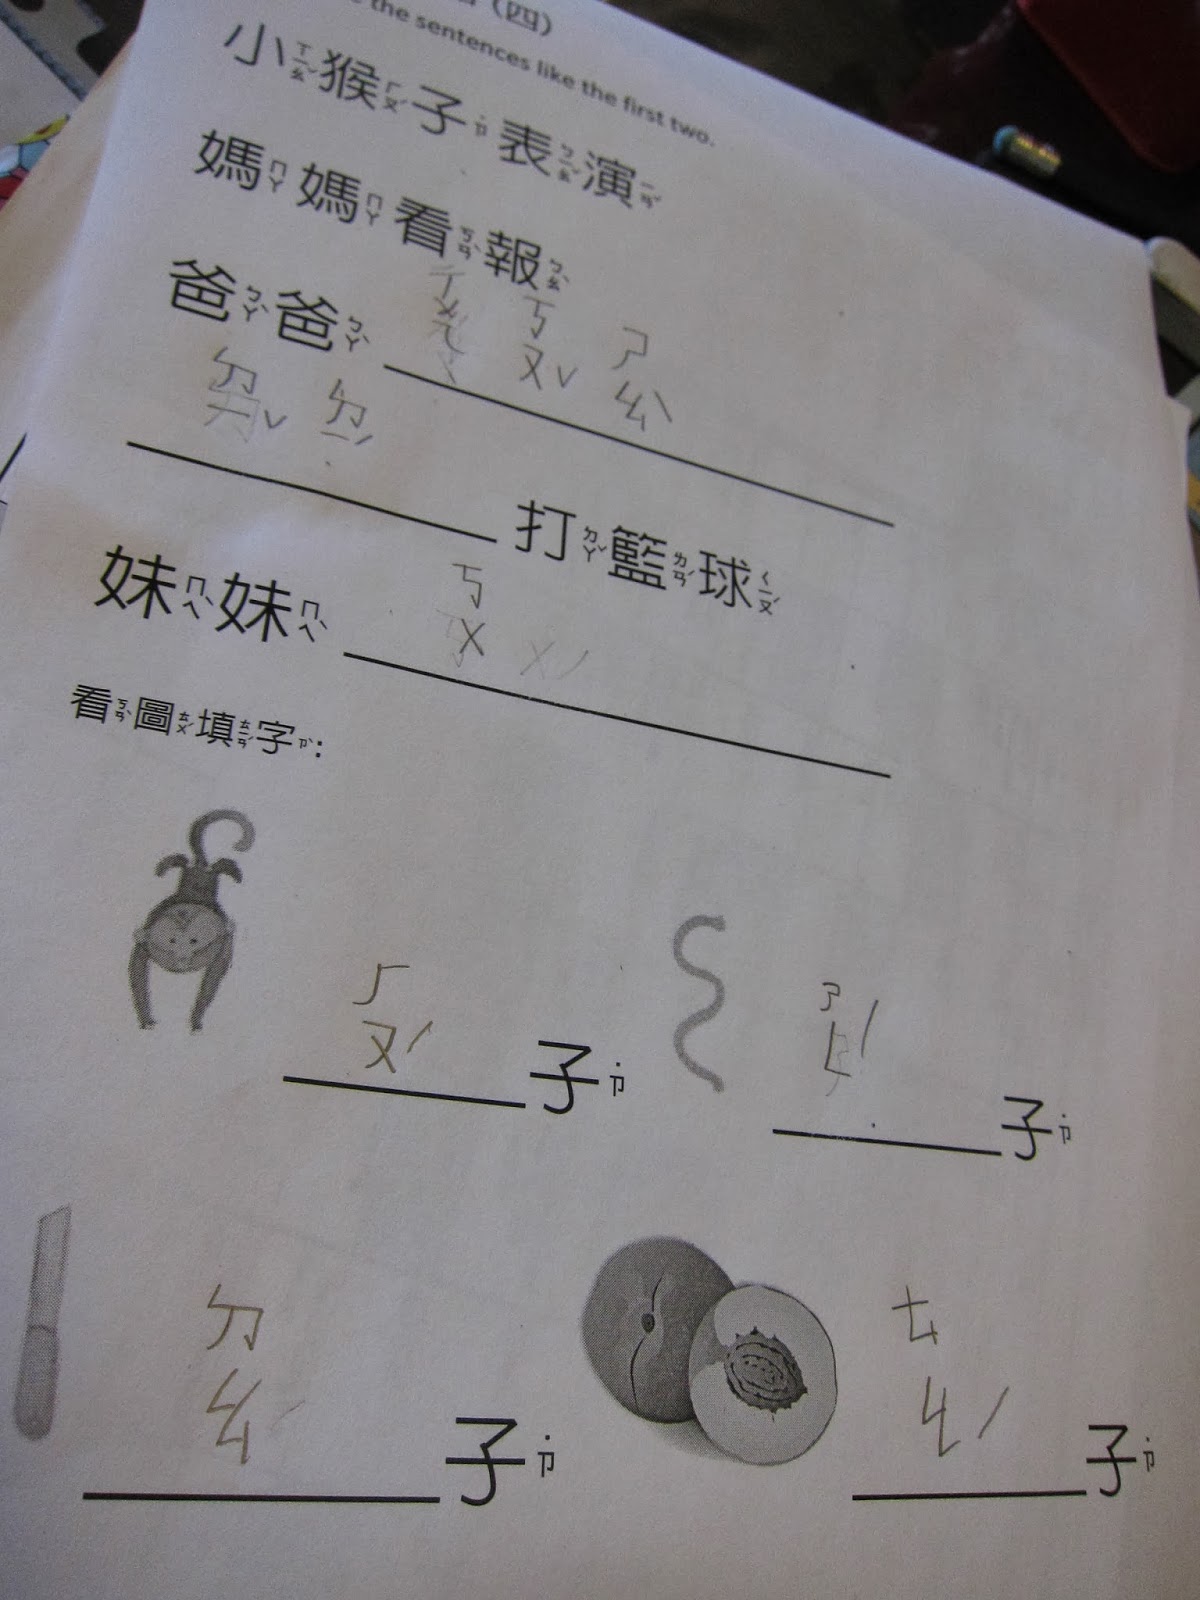 （四）
the sentences like the first two.
小ㄒㄧㄠˇ猴ㄏㄡˊ子˙ㄗ表ㄅㄧㄠˇ演ㄧㄢˇ
媽ㄇㄚ媽ㄇㄚ看ㄎㄢˋ報ㄅㄠˋ
爸ㄅㄚˋ爸ㄅㄚˋ ㄎㄡˇ ㄕㄠˋ
ㄉㄧˊ 打ㄉㄚˇ籃ㄌㄢˊ球ㄑㄧㄡˊ
妹ㄇㄟˋ妹ㄇㄟˋ ㄎㄨ ㄨˊ
看ㄎㄢˋ圖ㄊㄨˊ填ㄊㄧㄢˊ字ㄗˋ:
ㄏㄡˊ子˙ㄗ
ㄕㄥˊ子˙ㄗ
ㄉㄠ子˙ㄗ
ㄊㄠˊ子˙ㄗ